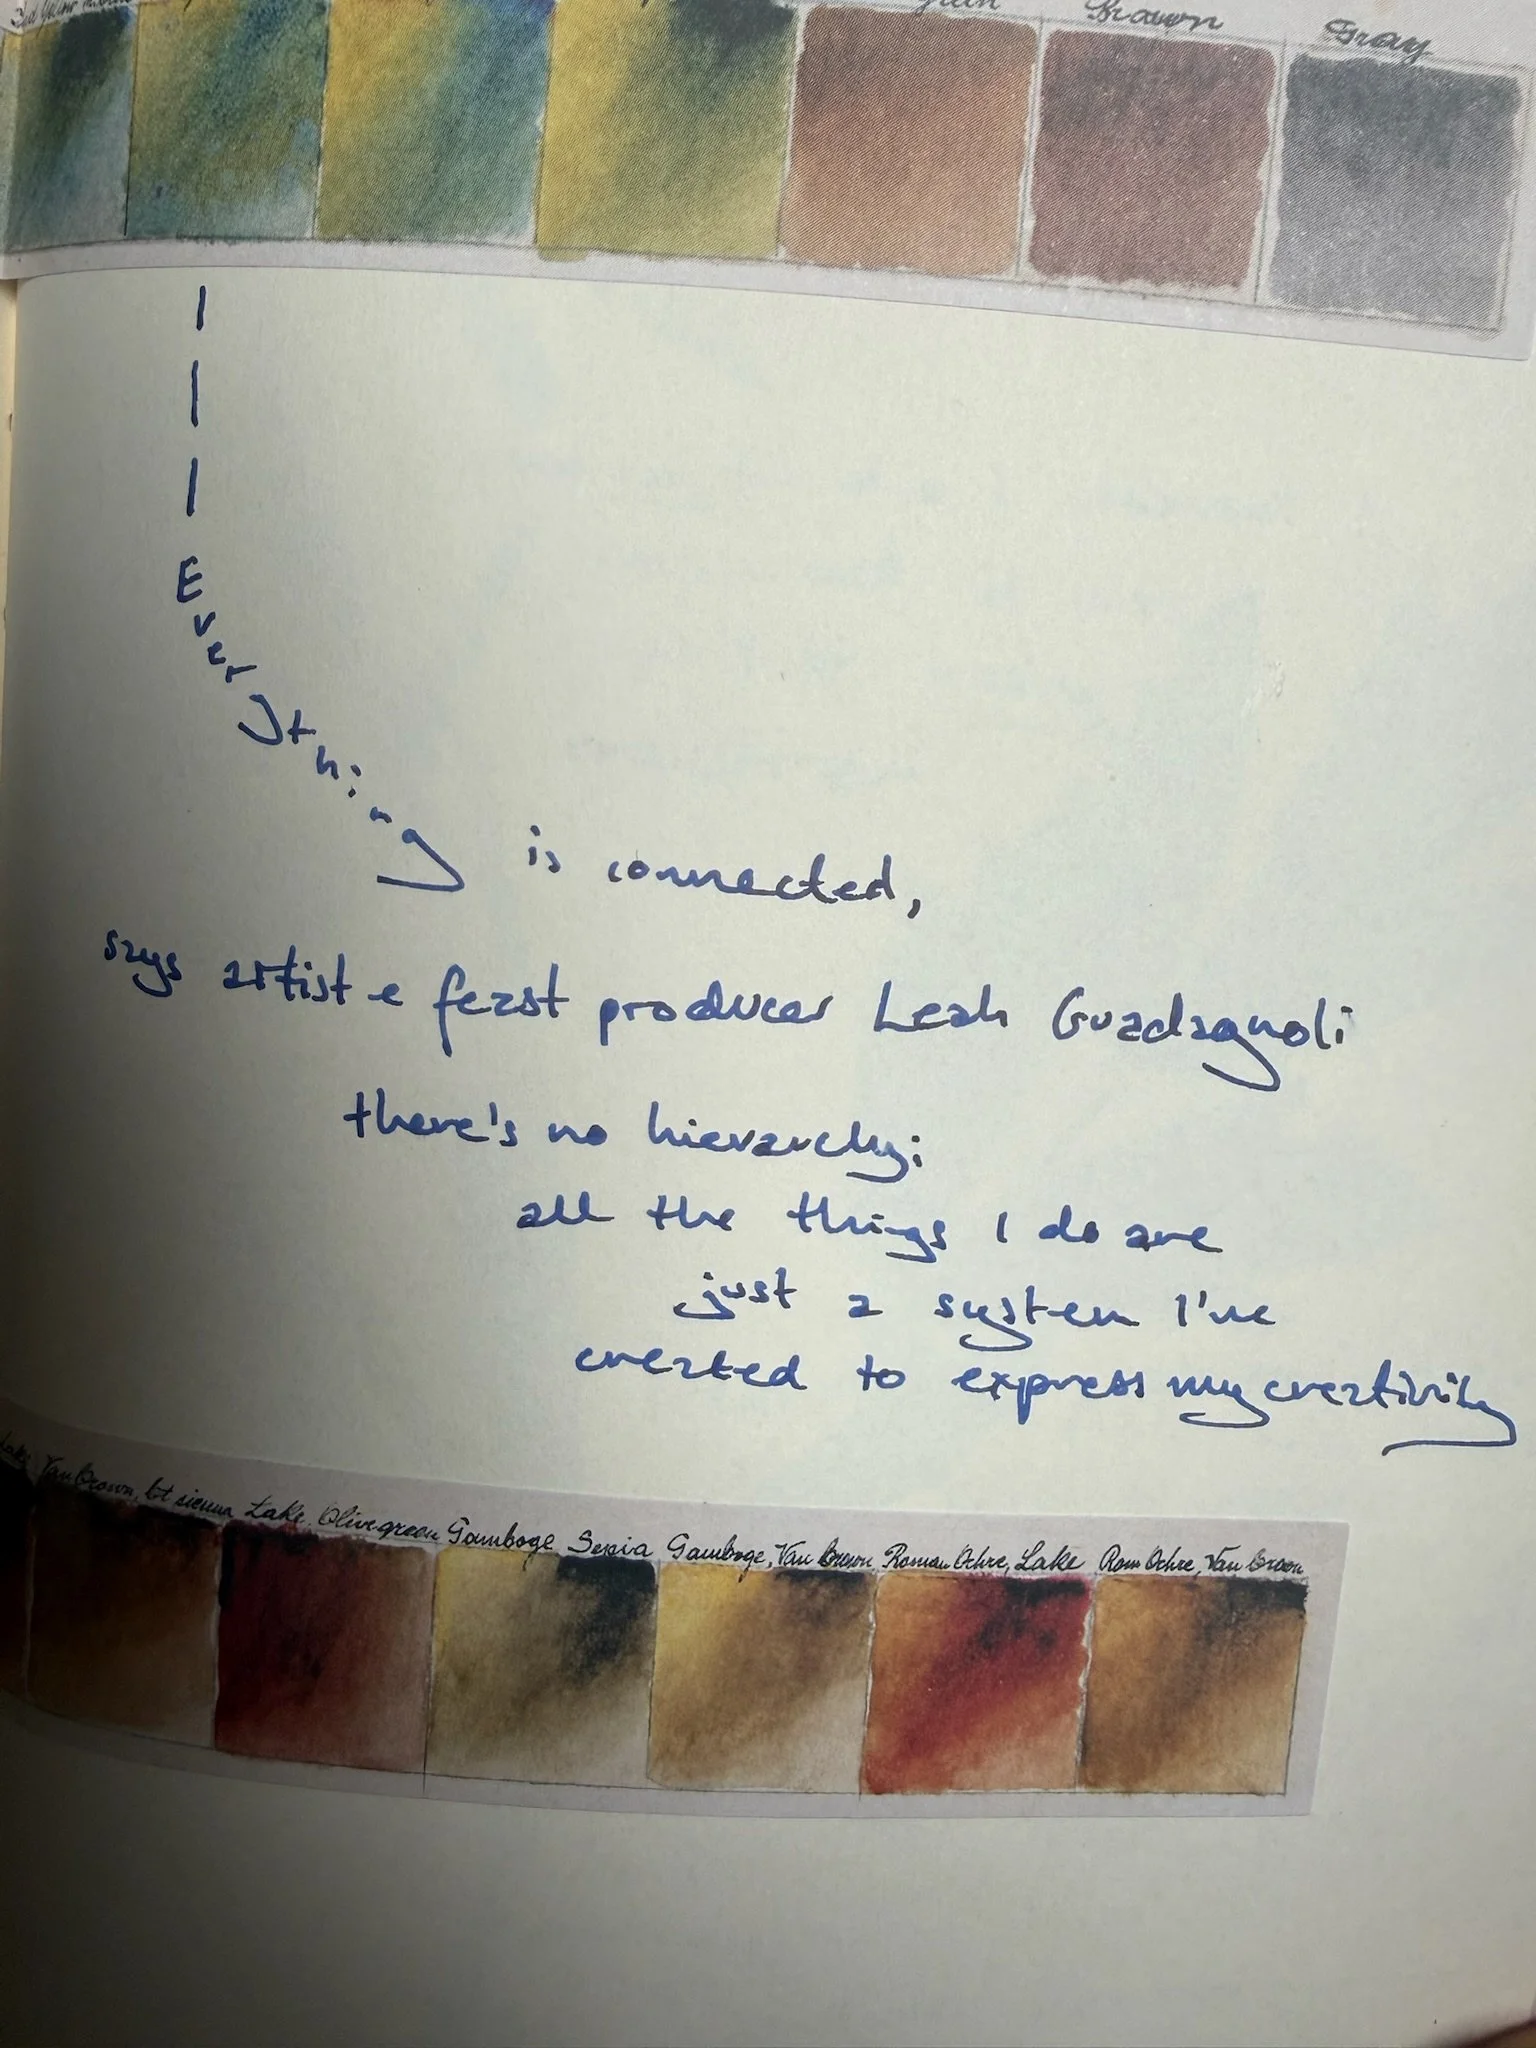 Green Brown Gray
Everything is connected,
says artist e feast producer Leah Guadagnoli
there's no hierarchy;
all the things I do are
just a system I've
created to express my creativity
Lake Van Brown, bt sienna Lake. Olivegreen Gamboge Sepia Gamboge, Van Brown, Roman Ochre, Lake Rom Ochre, Van brown